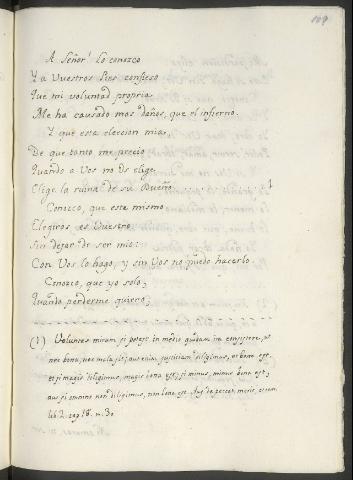 109
A Señor! lo conozco
Y a Vuestros Pies confieso
Que mi voluntad propria
Me ha causado mas daños, que el infierno.
Y que esta eleccion mia
De que tanto me precio
Quando a Vos no os elige
Elige la ruina de su Dueño
Conozco, que este mismo
Elegiros es Vuestro
Sin dejar de ser mio:
Con Vos lo hago, y sin Vos no puedo hacerlo.
Conozco, que yo solo,
Quando perderme quiero,
(1) Voluntas mirum si potest in medio quodam ita consistere, ut
nec bona, nec mala sit; aut enim justitiam diligimus, et bona est,
et si magis diligimus, magis bona est; si minus, minus bona est;
aut si omnino non diligimus, non bona est. Aug. de peccat. merit. et rem.
lib. 2. cap. 18. n. 30